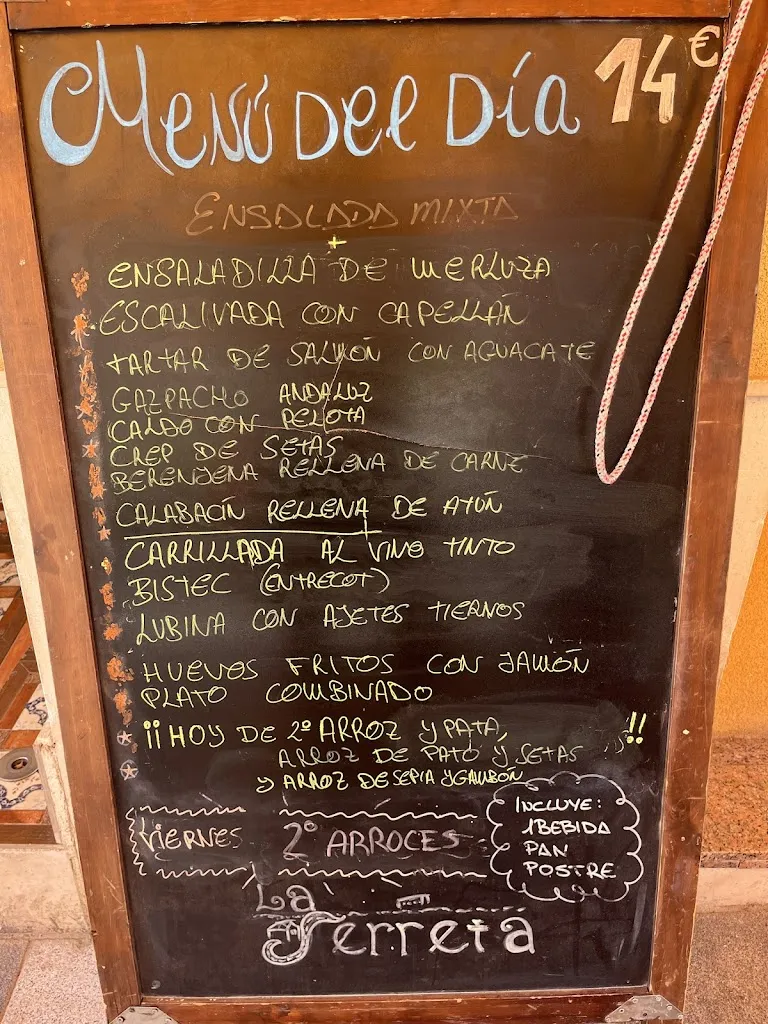 Menú del Día 14€
ENSALADA MIXTA
+
ENSALADILLA DE MERLUZA
ESCALIVADA CON CAPELLÁN
TARTAR DE SALMÓN CON AGUACATE
GAZPACHO ANDALUZ
CALDO CON PELOTA
CREP DE SETAS
BERENJENA RELLENA DE CARNE
CALABACÍN RELLENA DE ATÚN
CARRILLADA AL VINO TINTO
BISTEC (ENTRECOT)
LUBINA CON AJETES TIERNOS
HUEVOS FRITOS CON JAMÓN
PLATO COMBINADO
¡¡HOY DE 2º ARROZ Y PATA,
ARROZ DE PATO Y SETAS !!
Y ARROZ DE SEPIA Y GAMBÓN
VIERNES 2º ARROCES
INCLUYE:
1 BEBIDA
PAN
POSTRE
La
Ferreta